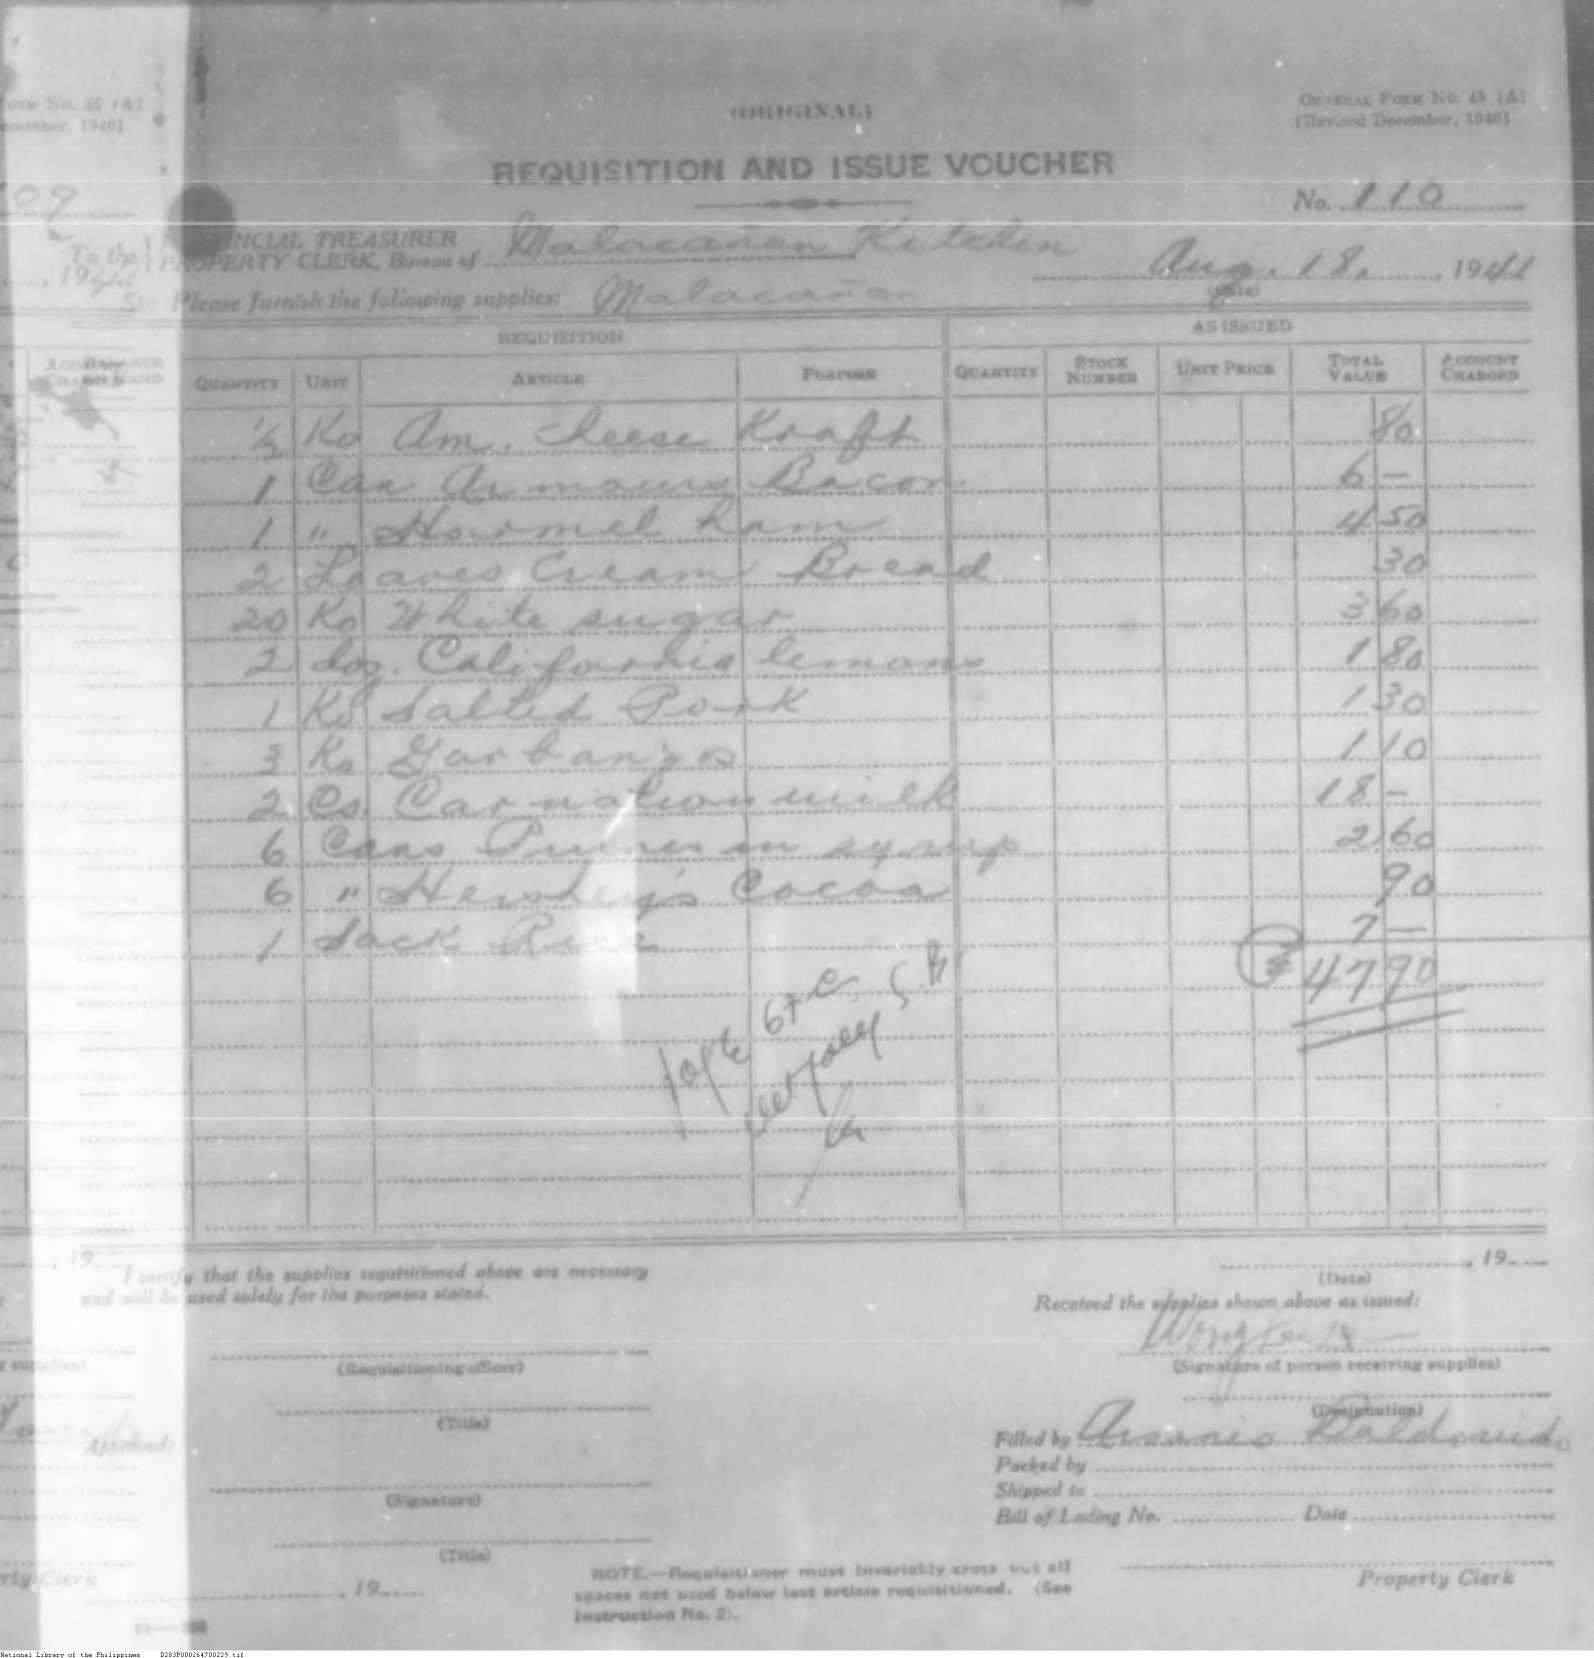 (ORIGINAL)
GENERAL FORM No. 45 (A)
(Revised December, 1940)
REQUISITION AND ISSUE VOUCHER
No. 110
To the PROVINCIAL TREASURER
PROPERTY CLERK, Bureau of Malacañan Kitchen
Aug. 18, 1941
(Date)
Sir: Please furnish the following supplies: Malacañan
REQUISITION AS ISSUED
QUANTITY UNIT ARTICLE PURPOSE QUANTITY STOCK NUMBER UNIT PRICE TOTAL VALUE ACCOUNT CHARGED
1/2 Ko Am. Cheese Kraft 80
1 Can Armours Bacon 6 —
1 " Hormel ham 4 50
2 Loaves Cream Bread 30
20 Ko White sugar 3 60
2 doz. California lemons 1 80
1 Ko Salted Pork 1 30
3 Ko Garbanzos 1 10
2 Cs. Carnation milk 18 —
6 Cans Prunes in syrup 2 60
6 " Hershey's Cocoa 90
1 Sack Rice 7 —
47 90
I certify that the supplies requisitioned above are necessary
and will be used solely for the purposes stated.
, 19
(Date)
Received the supplies shown above as issued:
(Requisitioning officer)
(Signature of person receiving supplies)
(Title)
(Designation)
Approved:
Filled by
Packed by
(Signature)
Shipped to
Bill of Lading No. Date
(Title)
, 19
NOTE.—Requisitioner must invariably cross out all
spaces not used below last article requisitioned. (See
Instruction No. 2).
Property Clerk
National Library of the Philippines D283P000264700229.tif